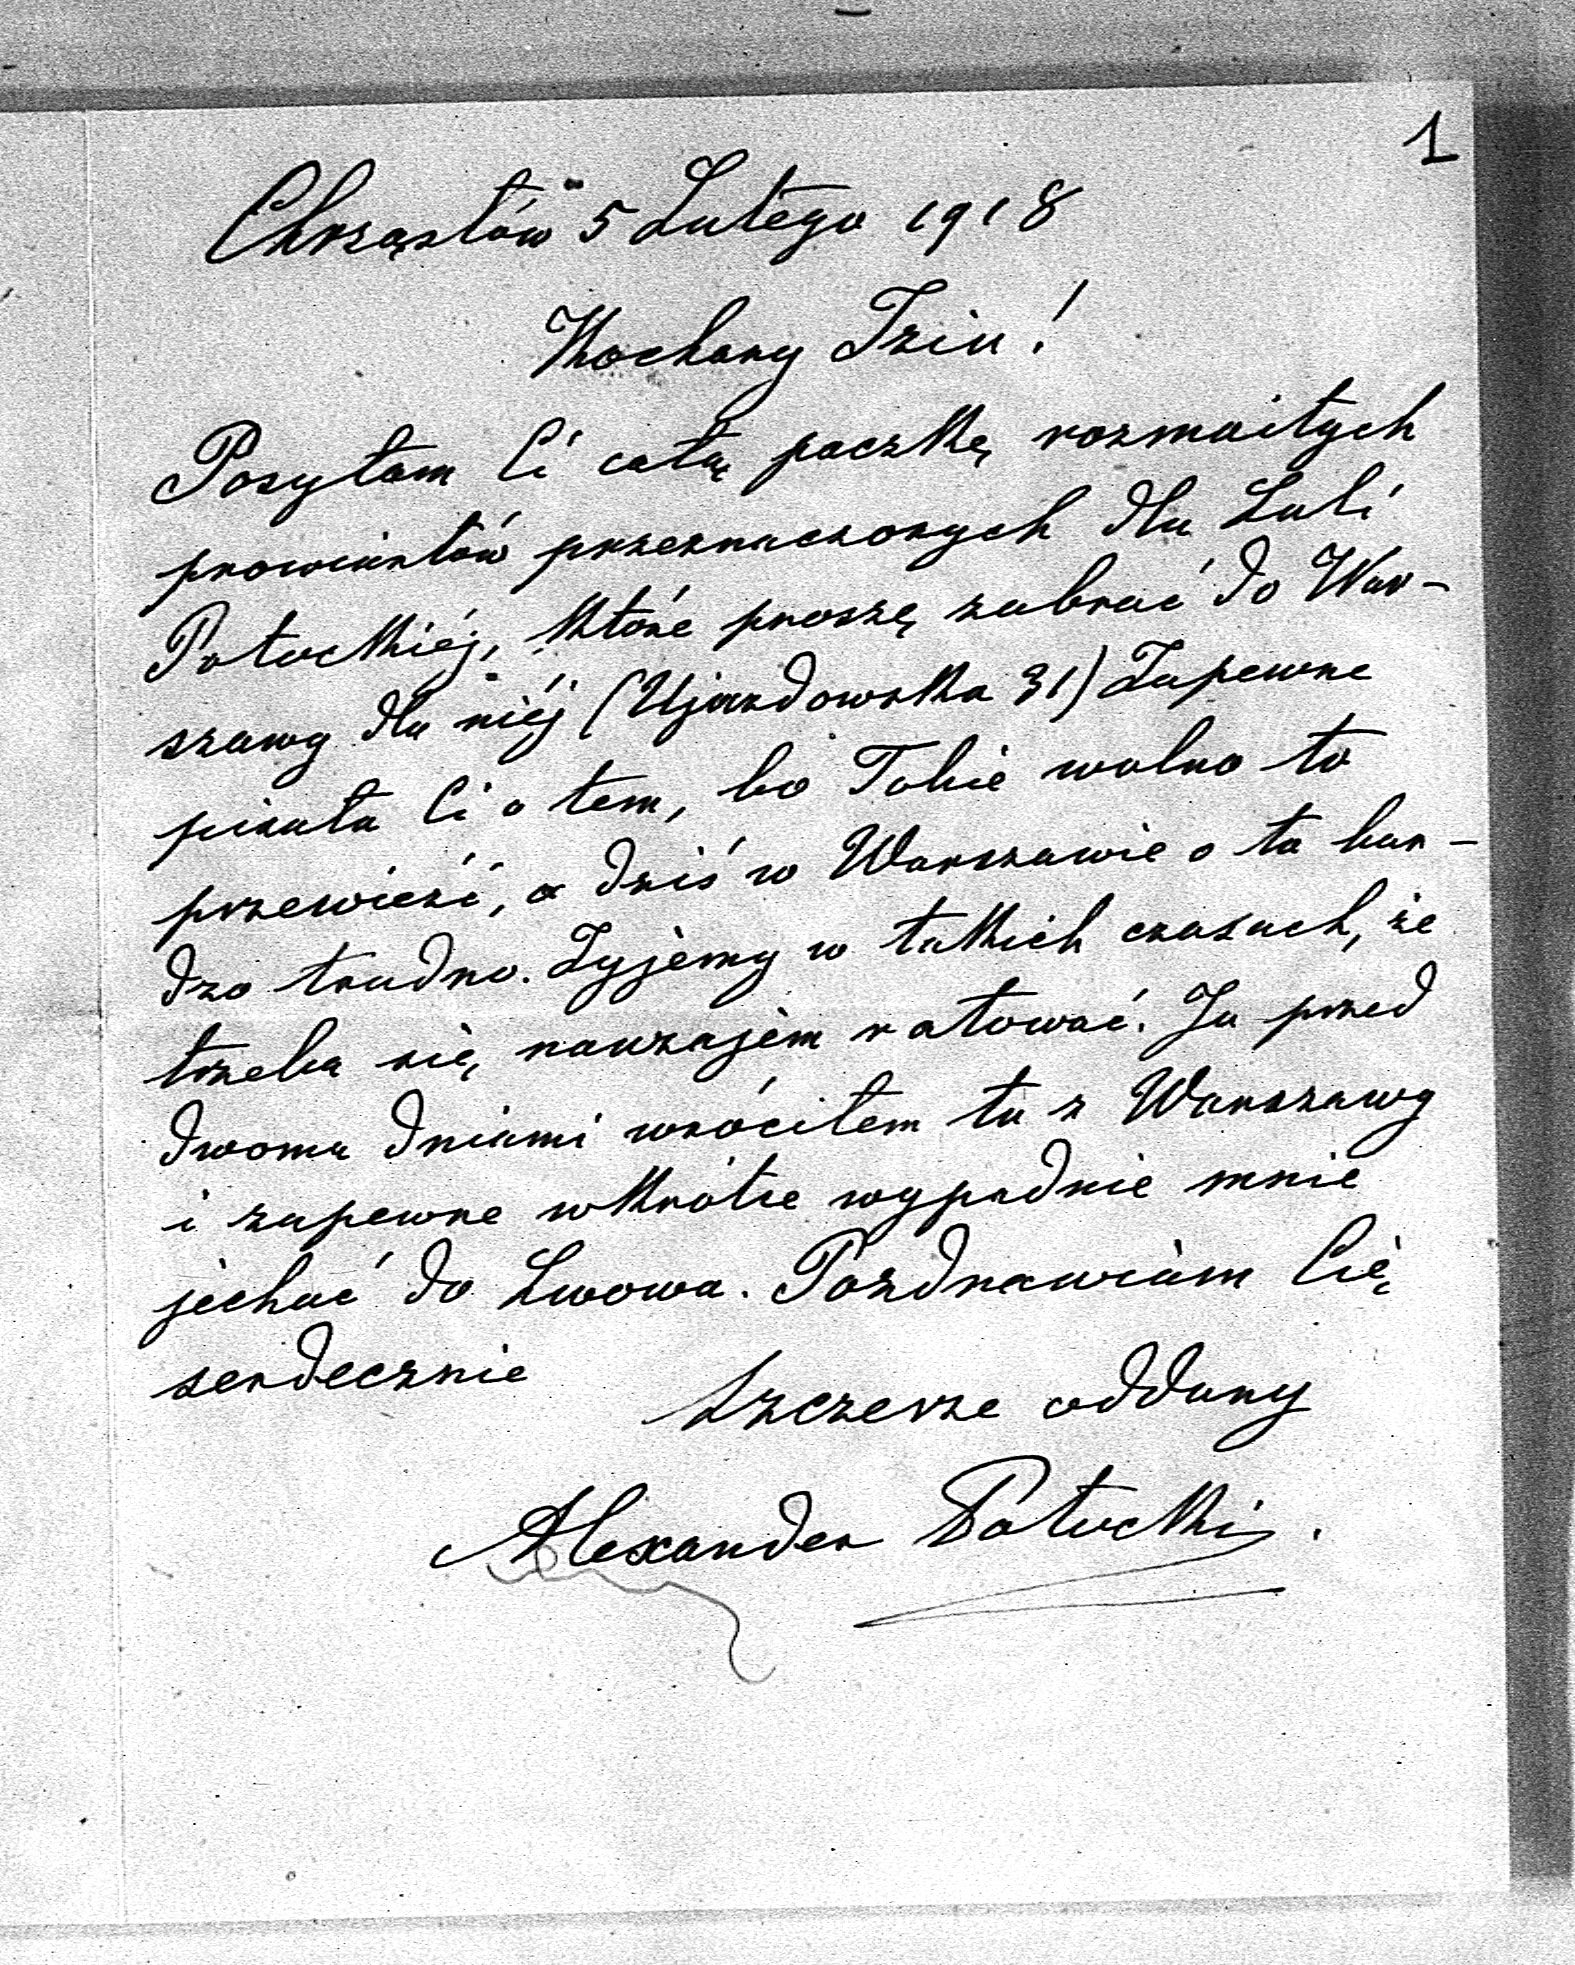 1
Chrząstów 5 Lutego 1918
Kochany Iziu!
Posyłam Ci całą paczkę rozmaitych
prowiantów przeznaczonych dla Luli
Potockiéj, które proszę zabrać do War-
szawy dla niéj (Ujazdowska 31) Zapewne
pisała Ci o tem, bo Tobie wolno to
przewieść, a dziś w Warszawie o to bar-
dzo trudno. Żyjemy w takich czasach, że
trzeba się nawzajem ratować. Ja przed
dwoma dniami wróciłem tu z Warszawy
i zapewne wkrótce wypadnie mnie
jechać do Lwowa. Pozdrawiam Cię
serdecznie
Szczerze oddany
Alexander Potocki.